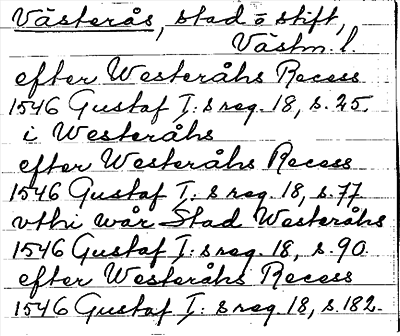 Västerås, stad o stift,
Västm. l.
efter Westeråhs Recess
1546 Gustaf I:s reg. 18, s. 25.
i Westeråhs
efter Westeråhs Recess
1546 Gustaf I:s reg. 18, s. 77
vthi wår Stad Westeråhs
1546 Gustaf I:s reg. 18, s. 90.
efter Westeråhs Recess
1546 Gustaf I:s reg. 18, s. 182.